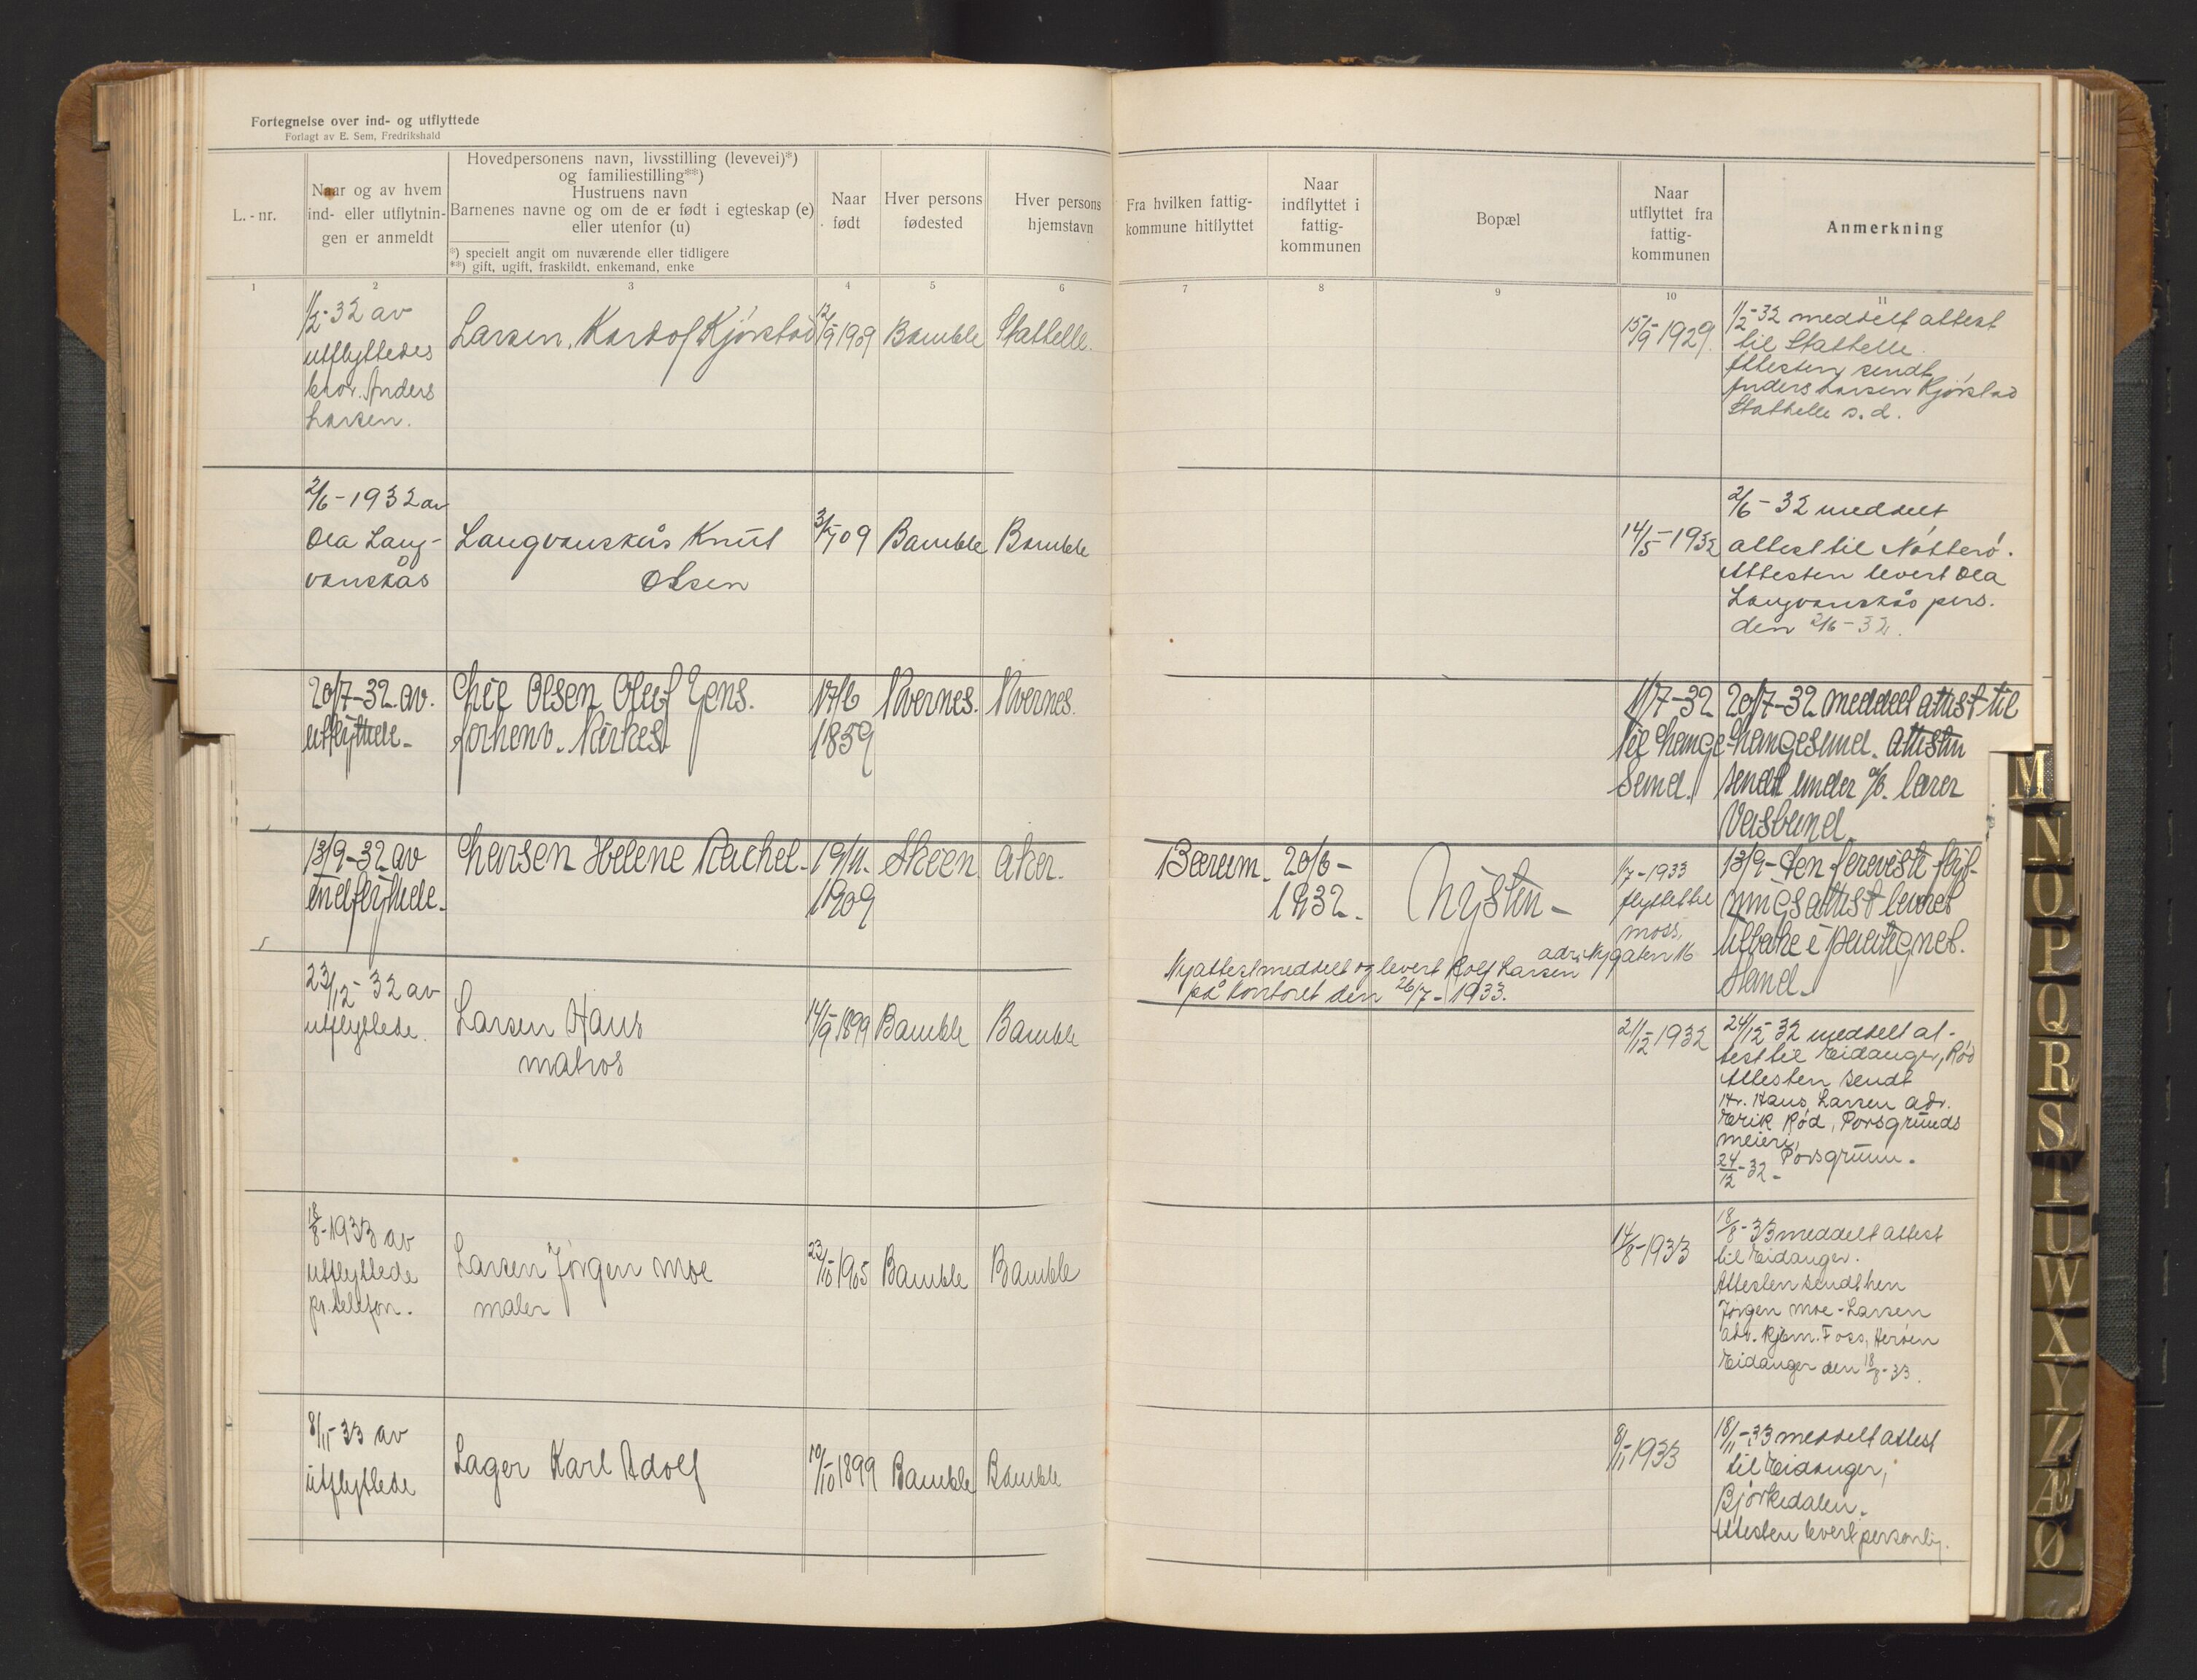 Fortegnelse over ind- og utflyttede
Forlagt av E. Sem, Fredrikshald
L.-nr.
Naar og av hvem
ind- eller utflytnin-
gen er anmeldt
Hovedpersonens navn, livsstilling (levevei)*)
og familiestilling**)
Hustruens navn
Barnenes navne og om de er født i egteskap (e)
eller utenfor (u)
*) specielt angit om nuværende eller tidligere
**) gift, ugift, fraskildt, enkemand, enke
Naar
født
Hver persons
fødested
Hver persons
hjemstavn
Fra hvilken fattig-
kommune hitflyttet
Naar
indflyttet i
fattig-
kommunen
Bopæl
Naar
utflyttet fra
fattig-
kommunen
Anmerkning
1 2 3 4 5 6 7 8 9 10 11
1/2-32 av
utflyttedes
bror. Anders
Larsen.
Larsen, Kjörstad
1909
Bamble
Stathelle.
15/9-1929.
1/2-32 meddelt attest
til Stathelle.
Attesten sendt
Anders Larsen Kjörstad
Stathelle s.d.
2/6-1932 av
Ola Lang-
vanskås
Langvanskås Knut
Olsen
09
Bamble
Bamble
14/5-1932
2/6-32 meddelt
attest til Nötterö.
Attesten levert Ola
Langvanskås pers.
den 2/6-32.
20/7-32. av.
utflyttede-
Lie Olsen Oluf Jens.
forhenv.
17/6
1859
Kvernes.
Kvernes.
11/7-32
til Lange-
sund.
20/7-32 meddelt attest til
Langesund. Attesten
sendt under lærer
13/9-32 av
indflyttede.
Larsen Helene Rachel.
19/11.
1909
Skeen
Aker.
Bærum.
20/6-
1932.
Nysten-
1/7-1933
flyttet til
Moss,
adr. Nygaten 16
13/9- Den foreviste flyt-
ningsattest levert
tilbake i paategnet
stand.
Ny attest meddelt og levert Rolf Larsen
på kontoret den 26/7-1933.
23/12-32 av
utflyttede.
Larsen Hans
matros
14/9 1899
Bamble
Bamble
21/12-1932
24/12-32 meddelt at-
test til Eidanger, Röd
Attesten sendt
Hr. Hans Larsen adr.
Erik Röd, Porsgrunds
meieri,
Porsgrunn.
24/12-32-
18/8-1933 av
utflyttede
pr. telefon.
Larsen Jörgen Moe
maler
23/10 1905
Bamble
Bamble
14/8-1933
18/8-33 meddelt attest
til Eidanger.
Attesten sendt hen
Jörgen Moe-Larsen
adr. Kjem. Foss, Heröen
Eidanger den 18/8-33.
8/11-33 av
utflyttede
Lager Karl Adolf
19/10 1899
Bamble
Bamble
8/11-1933
18/11-33 meddelt attest
til Eidanger,
Björkedalen.
Attesten levert personlig.
M
N
O
P
Q
R
S
T
U
W
X
Y
Z
Æ
Ø